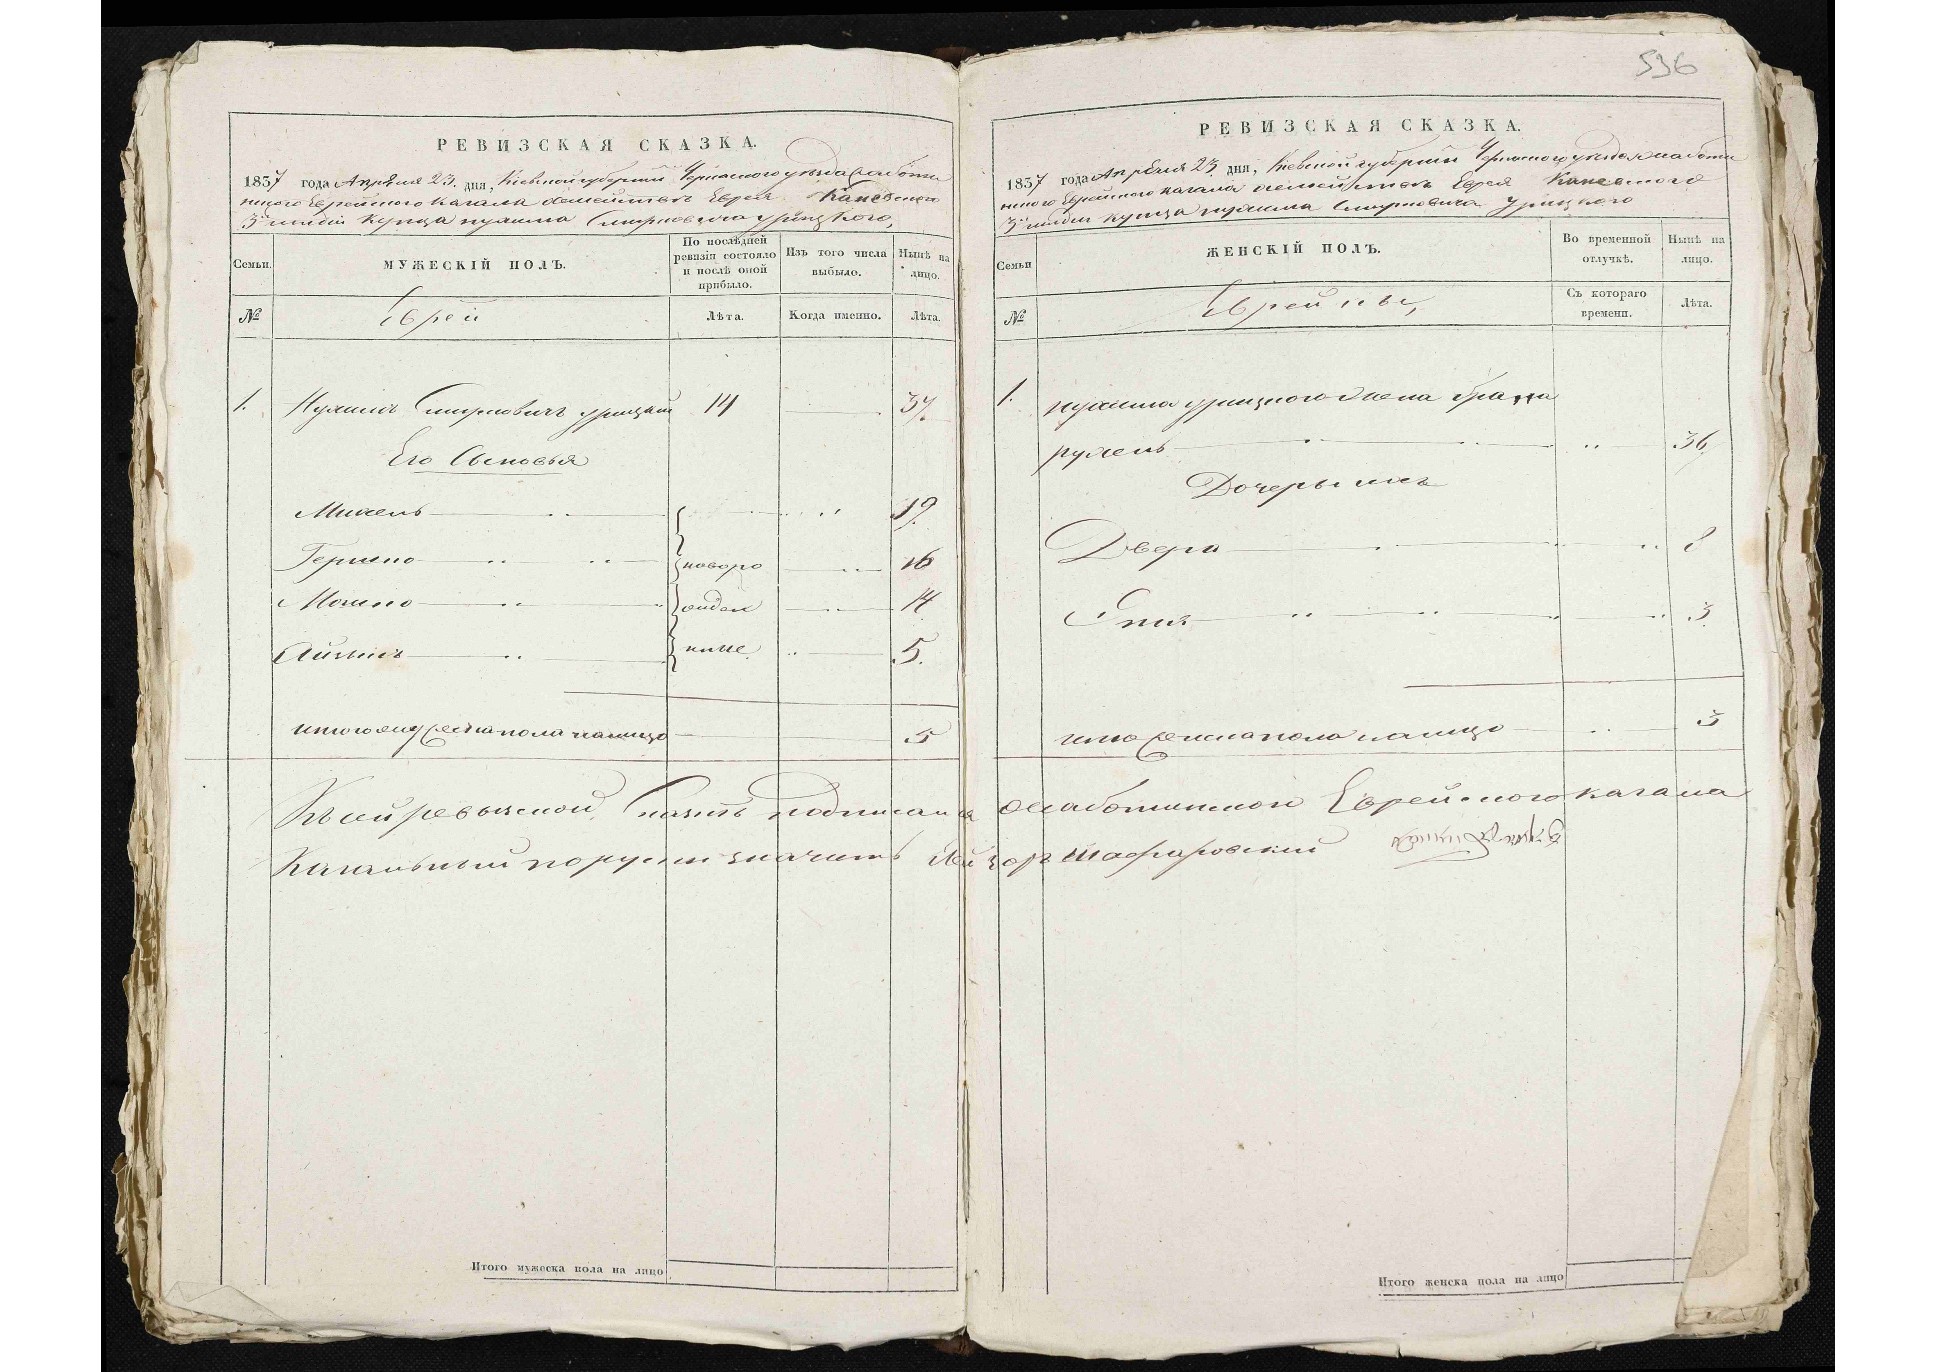 РЕВИЗСКАЯ СКАЗКА.
1837 года Апреля 23. дня, Киевской губернии Черкасского уезда Слаботи
нского Еврейского кагала о семействе Еврея Каневского
3й гильдии купца Нухима Смирновича Урицкого,
Семьи.
МУЖЕСКІЙ ПОЛЪ.
По послѣдней ревизіи состояло и послѣ оной прибыло.
Изъ того числа выбыло.
Нынѣ на лицо.
№
Еврей
Лѣта.
Когда именно.
Лѣта.
1. Нухимъ Смирновичъ Урицкий 14 37.
Его Сыновья
Михель 19.
Гершко новоро 16
Мошко жден 14.
Айзикъ ные. 5.
итого мужеска пола налицо 5
Итого мужеска пола на лицо
536
РЕВИЗСКАЯ СКАЗКА.
1837 года Апреля 23 дня, Киевской губернии Черкасского уезда Слаботи
нского Еврейского кагала о семействе Еврея Каневского
3й гильдии купца Нухима Смирновича Урицкого
Семьи
ЖЕНСКІЙ ПОЛЪ.
Во временной отлучкѣ.
Нынѣ на лицо.
№
Еврейки,
Съ котораго времени.
Лѣта.
1. Нухима Урицкого жена
Рухель 36.
Дочери ихъ
Двера 8
3.
итого женска пола налицо 3
Къ сей ревизской Сказкѣ подписался Слаботинского Еврейского кагала
Кагальный поруски значитъ Лейзоръ Шафаровский
Итого женска пола на лицо